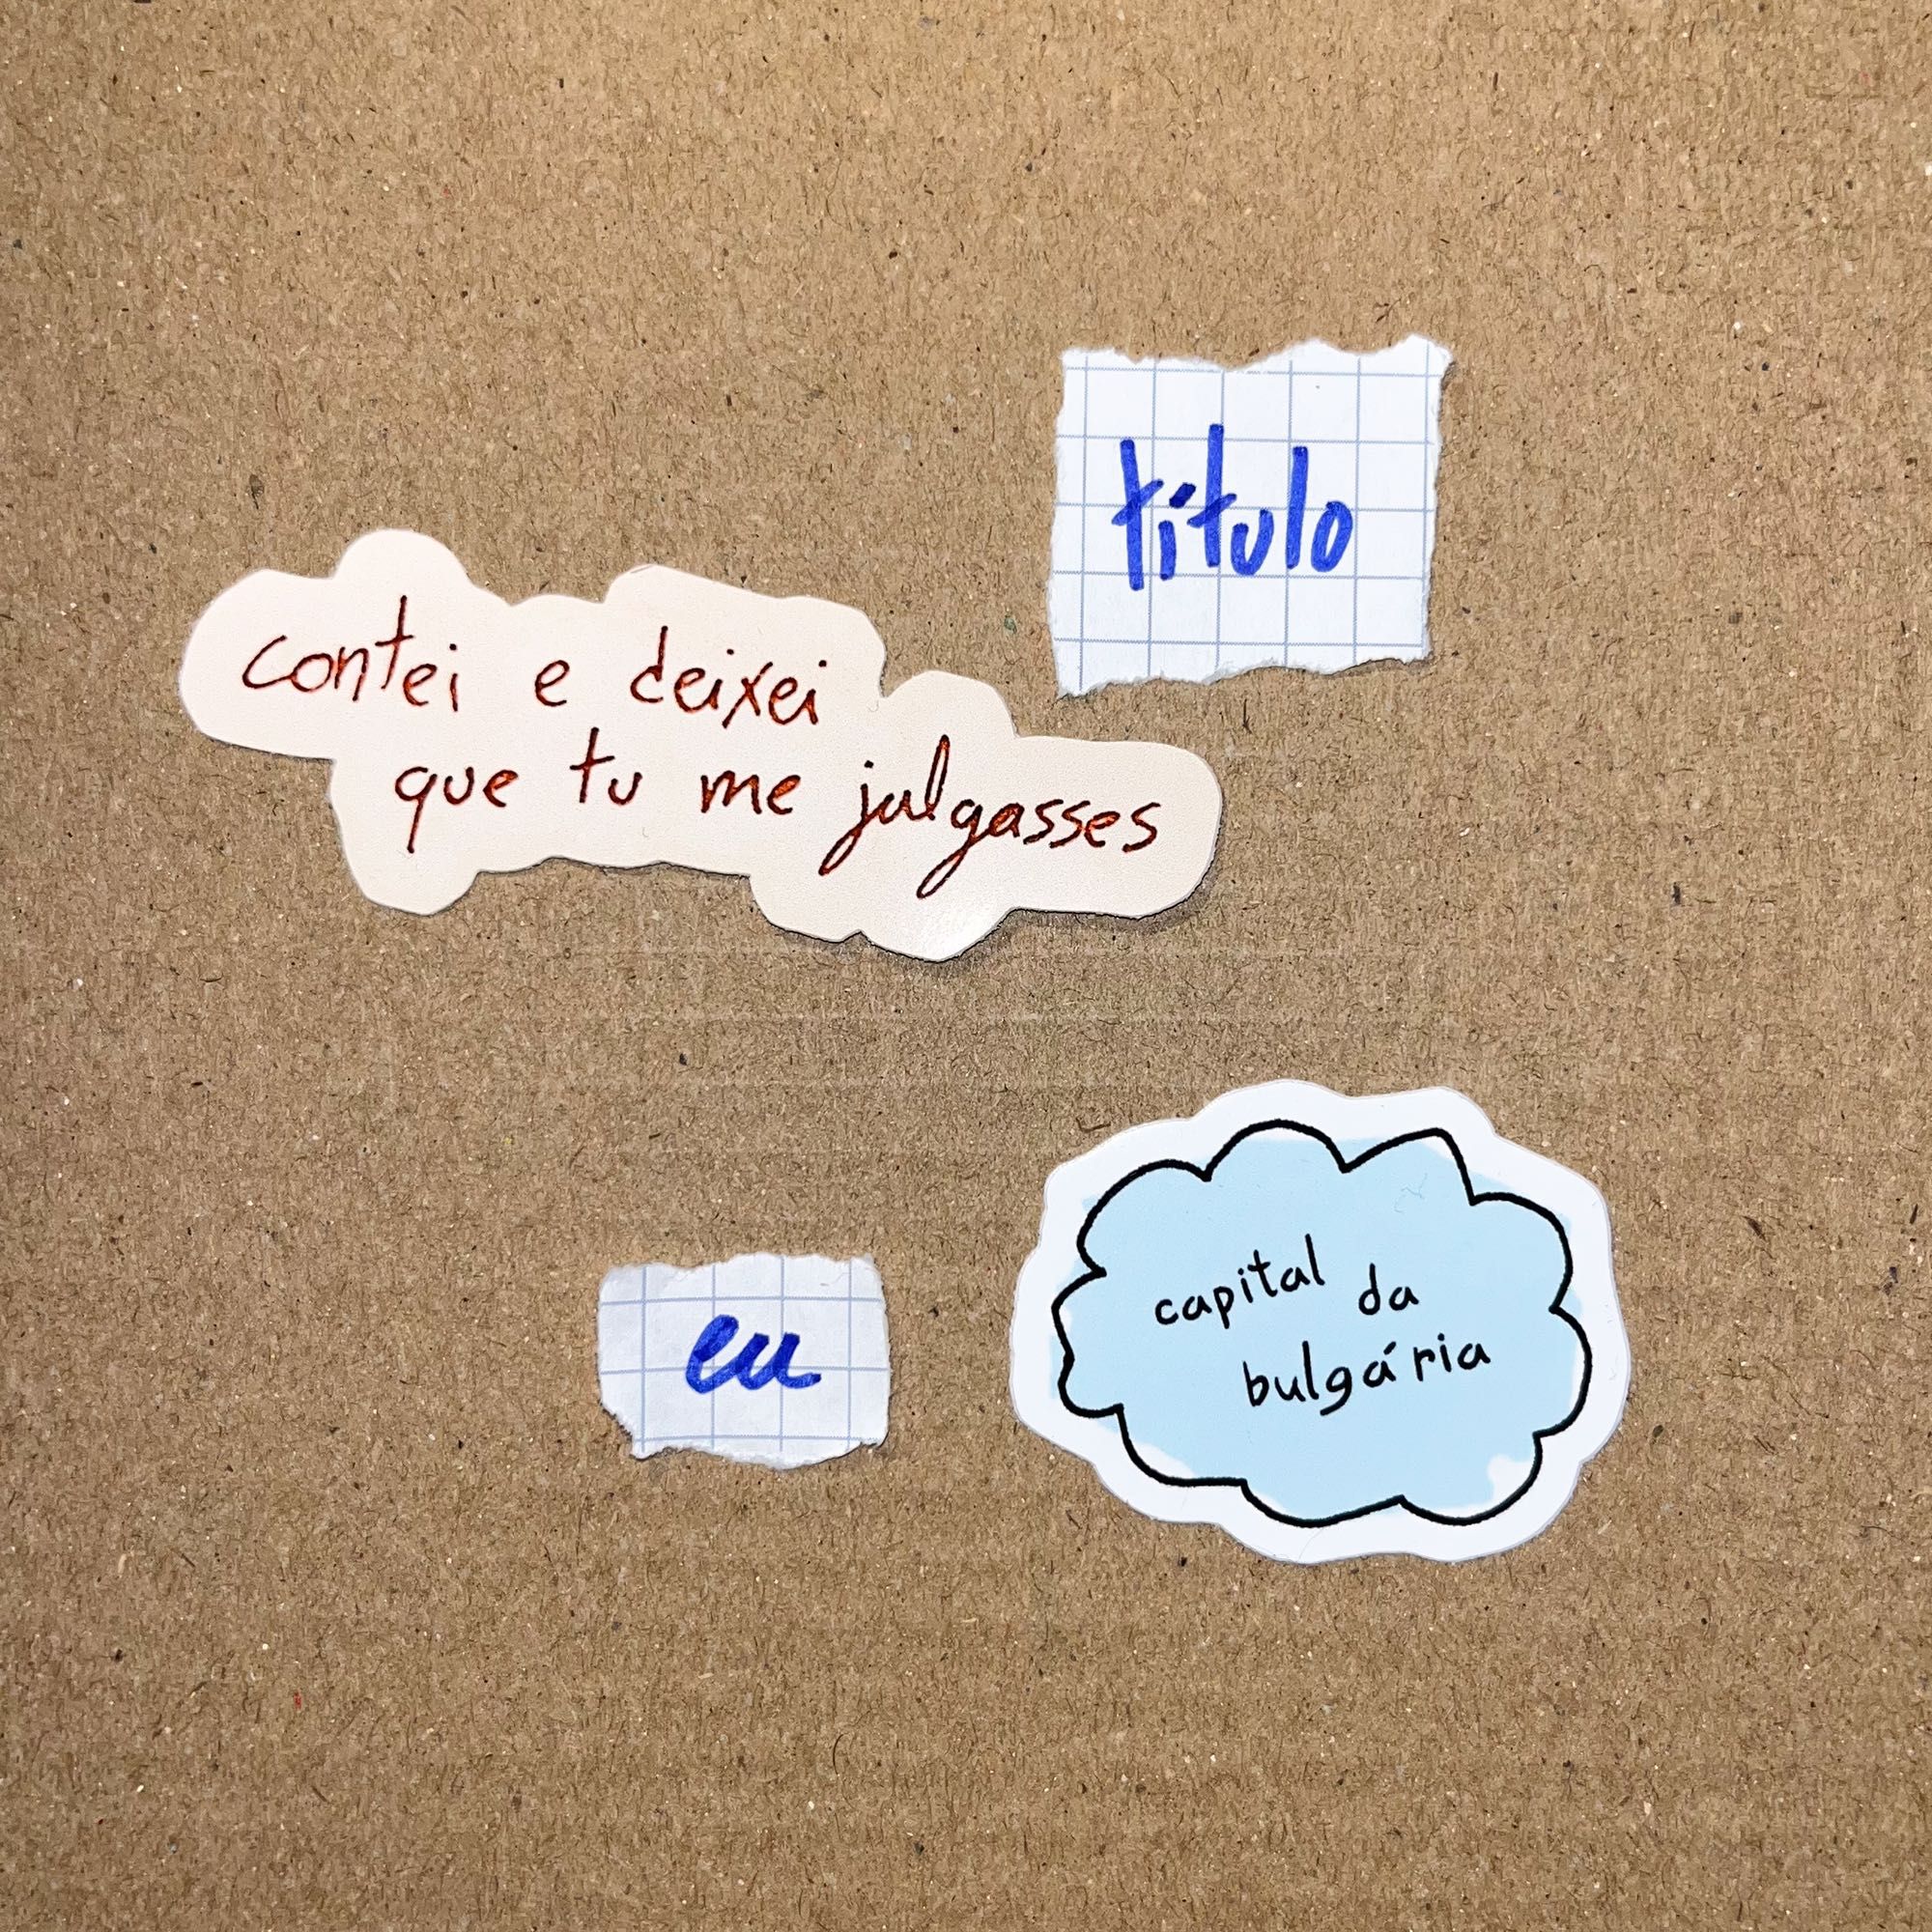 título
contei e deixei
que tu me julgasses
eu
capital da
bulgária